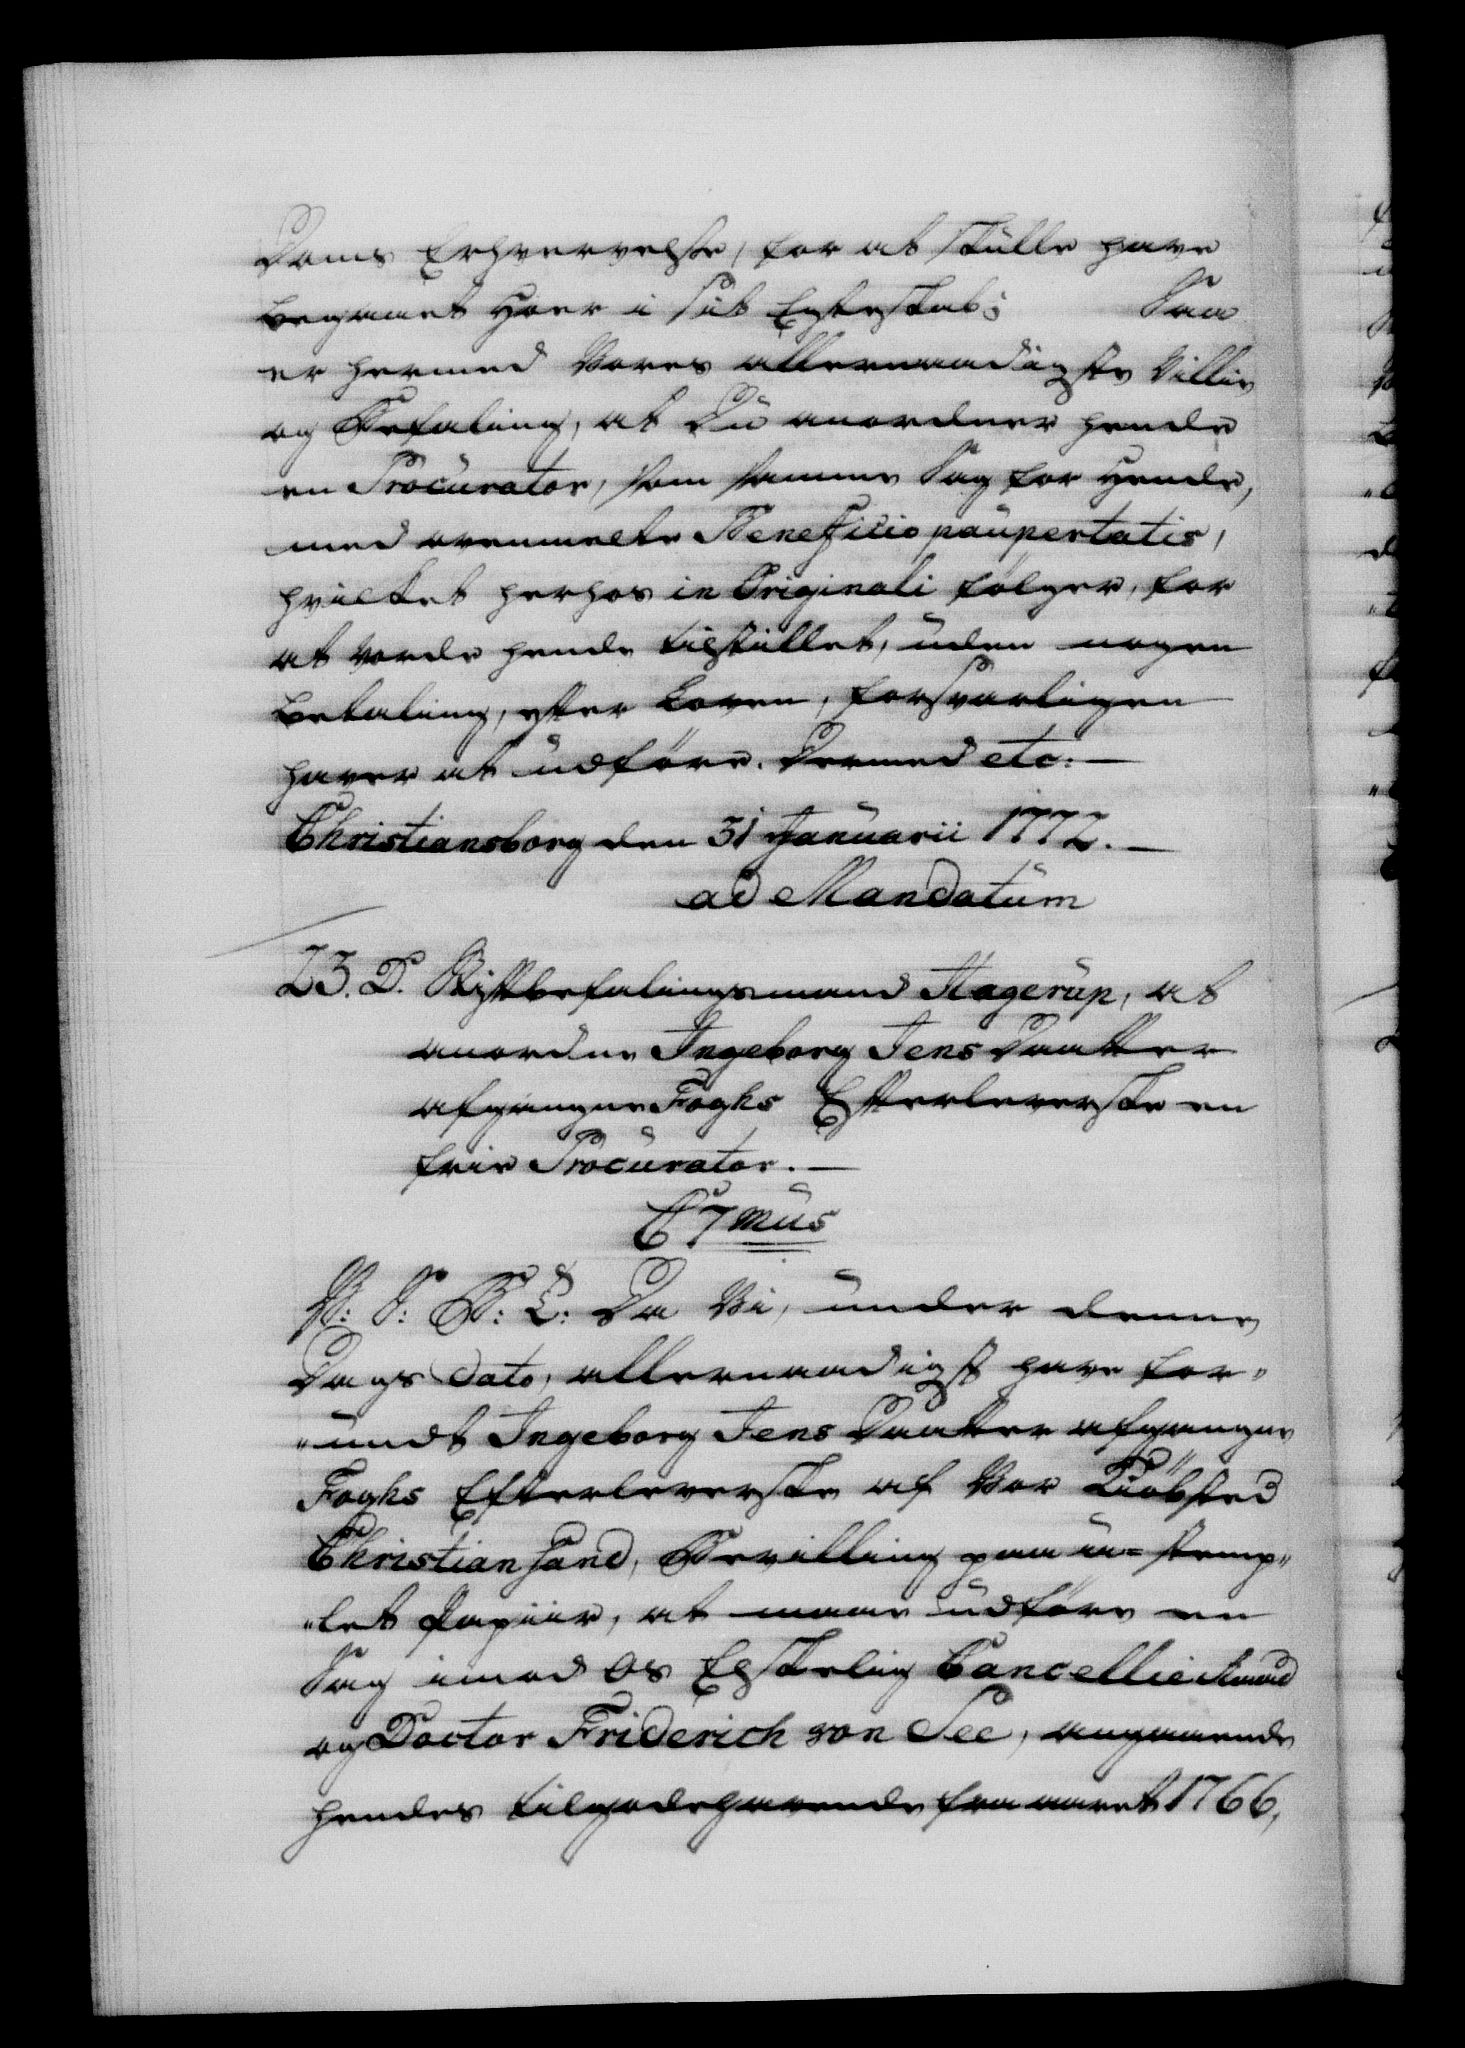 Doms Erhvervelse, for at skulle have
begaaet Hoer i sit Egteskab; Saa
er hermed Vores allernaadigste Villie
og Befaling, at Du anordner hende
en Procurator, som samme Sag for Hende,
med ovenmelte Beneficio paupertatis,
hvilket herhos in Originali følger, for
at vorde hende tilstillet, uden nogen
Betaling, efter Loven, forsvarligen
haver at udføre. Dermed etc:
Christiansborg den 31 Januarii 1772.
ad Mandatum
23. D. Stiftbefalingsmand Hagerup, at
anordne Ingeborg Jens Daatter
afgangne Foghs Efterleverske en
frie Procurator.
C 7mus
V: S: G: T: Da Vi, under denne
Dags Dato, allernaadigst have for„
„undt Ingeborg Jens Daatter afgangne
Foghs Efterleverske af Vor Kiøbsted
Christiansand, Bevilling paa u= stemp„
„let Papiir, at maae udføre en
Sag imod Os Elskelig Cancellieraad
og Doctor Friderich von See, angaaende
hendes tilgodehavende fra aaret 1766,